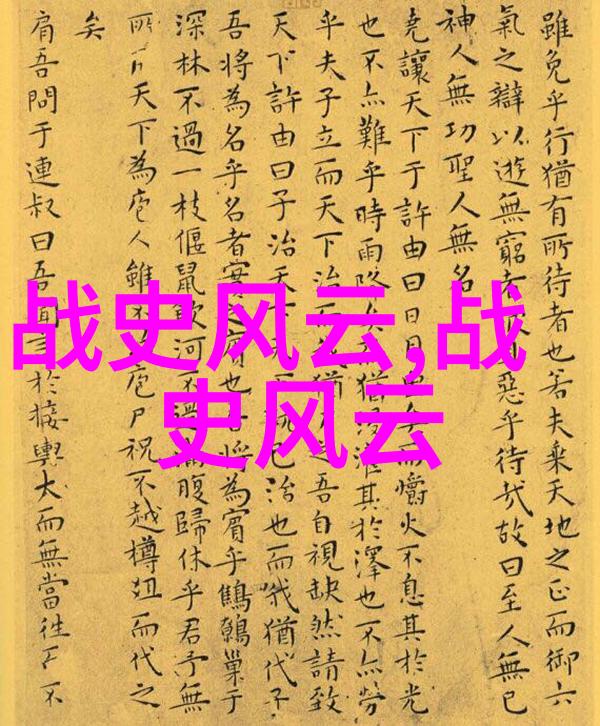 战史风云,战
史风云
雖免乎行猶有所待者也若夫乘天地之正而御六
氣之辯以遊無窮者惡乎待哉故曰至人無己
神人無功聖人無名
堯讓天下于許由曰日月矣而爝火不息其於光
也不亦難乎時雨降矣猶浸灌其於澤也不亦勞
乎夫子立而天下治而猶之吾自視缺然請致
天下許由曰子治天下天下既已治也而我猶代子
吾將為名乎名者實之賓也將為賓乎鷦鷯巢于
深林不過一枝偃鼠飲河不過滿腹歸休乎君予無
所天下為庖人雖不庖尸祝不越樽俎而代之
矣
肩吾問于連叔曰吾聞於接輿大而無當往不